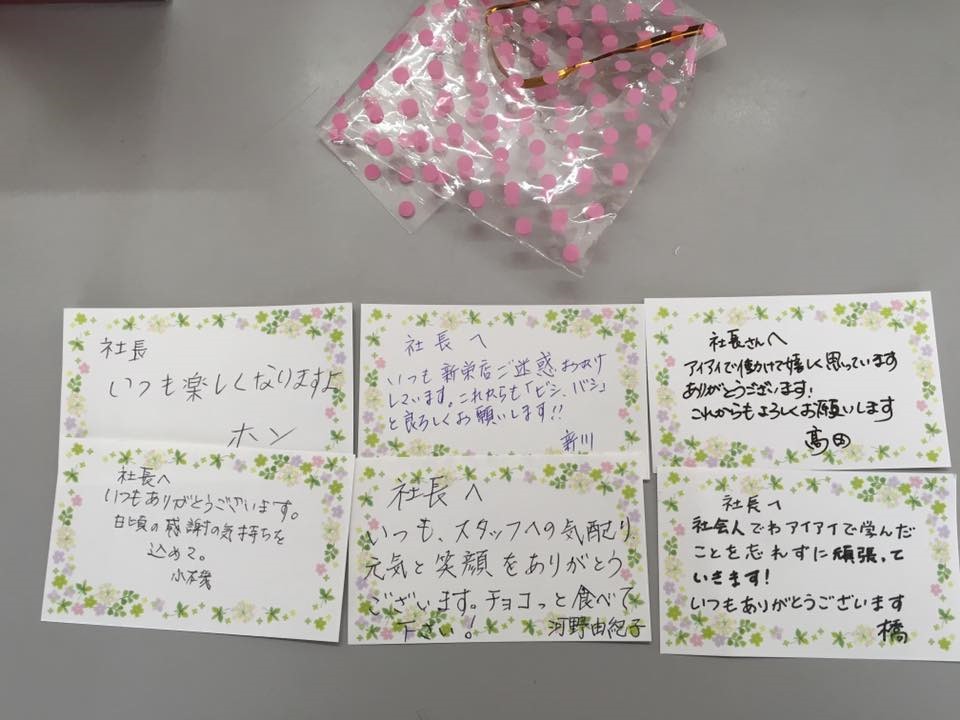 社長
いつも楽しくなりますよ
ホン
社長へ
いつも新栄店ご迷惑おかけ
しています。これからも「ビシ、バシ」
と良ろしくお願いします!!
新川
社長さんへ
アイアイで働けて嬉しく思っています
ありがとうございます!
これからもよろしくお願いします
髙田
社長へ
いつもありがとうございます。
日頃の感謝の気持ちを
込めて。
社長へ
いつも、スタッフへの気配り
元気と笑顔をありがとう
ございます。チョコっと食べて
下さい!
河野由紀子
社長へ
社会人でわアイアイで学んだ
ことを忘れずに頑張って
いきます!
いつもありがとうございます
橋